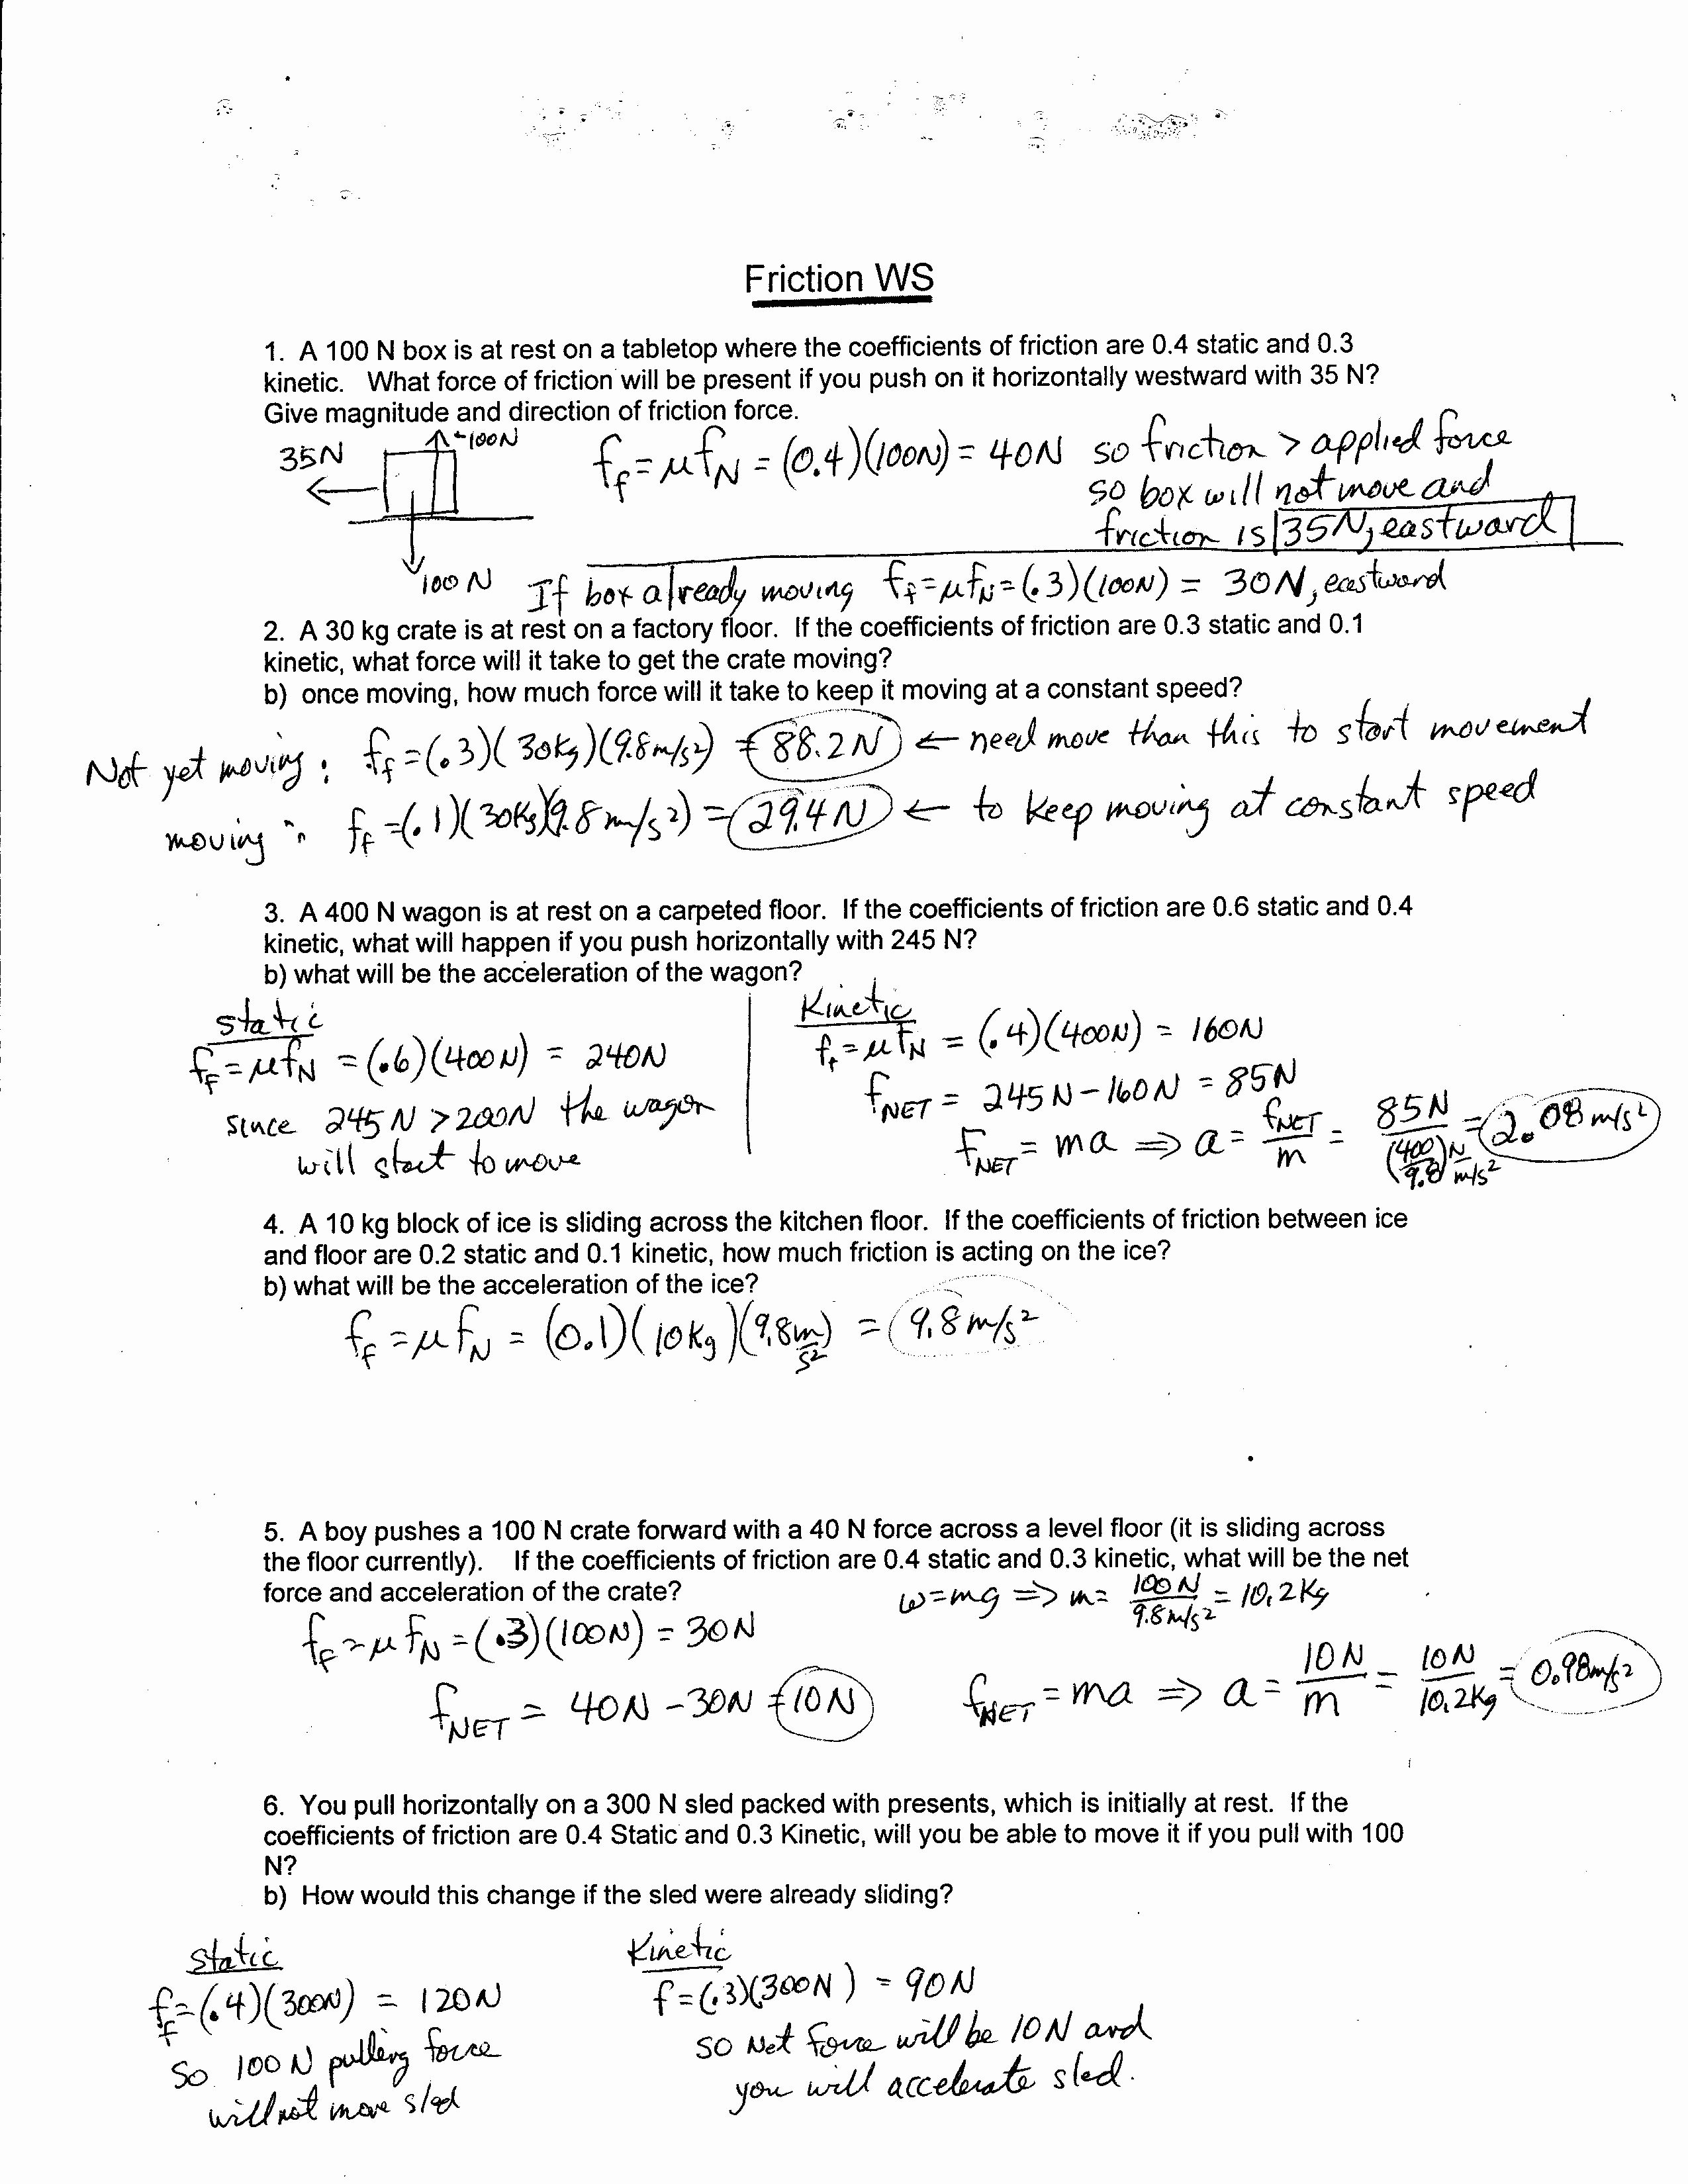 Friction WS
1. A 100 N box is at rest on a tabletop where the coefficients of friction are 0.4 static and 0.3
kinetic. What force of friction will be present if you push on it horizontally westward with 35 N?
Give magnitude and direction of friction force.
35N
100N
100N
f_F = μf_N = (0.4)(100N) = 40N so friction > applied force
so box will not move and
friction is 35N, eastward
If box already moving f_F = μf_N = (.3)(100N) = 30N, eastward
2. A 30 kg crate is at rest on a factory floor. If the coefficients of friction are 0.3 static and 0.1
kinetic, what force will it take to get the crate moving?
b) once moving, how much force will it take to keep it moving at a constant speed?
Not yet moving: f_F = (.3)(30kg)(9.8m/s²) = 88.2N ← need move than this to start movement
moving: f_F = (.1)(30kg)(9.8m/s²) = 29.4N ← to keep moving at constant speed
3. A 400 N wagon is at rest on a carpeted floor. If the coefficients of friction are 0.6 static and 0.4
kinetic, what will happen if you push horizontally with 245 N?
b) what will be the acceleration of the wagon?
static
f_F = μf_N = (.6)(400N) = 240N
since 245N > 200N the wagon
will start to move
Kinetic
f_F = μf_N = (.4)(400N) = 160N
f_NET = 245N - 160N = 85N
f_NET = ma ⇒ a = f_NET/m = 85N/((400/9.8) N/m/s²) = 2.08 m/s²
4. A 10 kg block of ice is sliding across the kitchen floor. If the coefficients of friction between ice
and floor are 0.2 static and 0.1 kinetic, how much friction is acting on the ice?
b) what will be the acceleration of the ice?
f_F = μf_N = (0.1)(10kg)(9.8m/s²) = 9.8m/s²
5. A boy pushes a 100 N crate forward with a 40 N force across a level floor (it is sliding across
the floor currently). If the coefficients of friction are 0.4 static and 0.3 kinetic, what will be the net
force and acceleration of the crate?
w = mg ⇒ m = 100N/9.8m/s² = 10.2kg
f_F = μf_N = (.3)(100N) = 30N
f_NET = 40N - 30N = 10N
f_NET = ma ⇒ a = 10N/m = 10N/10.2kg = 0.98m/s²
6. You pull horizontally on a 300 N sled packed with presents, which is initially at rest. If the
coefficients of friction are 0.4 Static and 0.3 Kinetic, will you be able to move it if you pull with 100
N?
b) How would this change if the sled were already sliding?
static
f_F = (.4)(300N) = 120N
So 100N pulling force
will not move sled
Kinetic
f = (.3)(300N) = 90N
so Net force will be 10N and
you will accelerate sled.